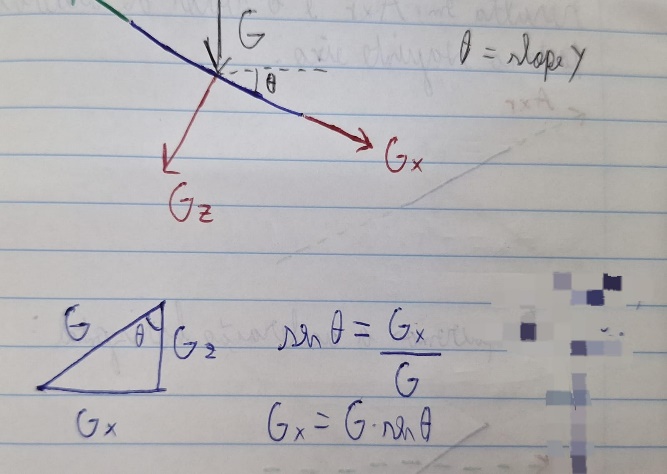 G
θ = slope y
θ
Gx
Gz
G
θ
Gz
Gx
sin θ = Gx / G
Gx = G · sin θ